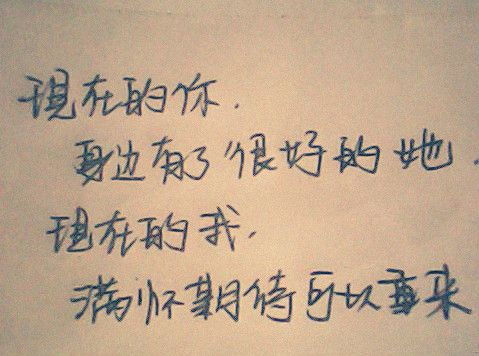 现在的你.
身边有了很好的她.
现在的我.
满怀期待可以重来